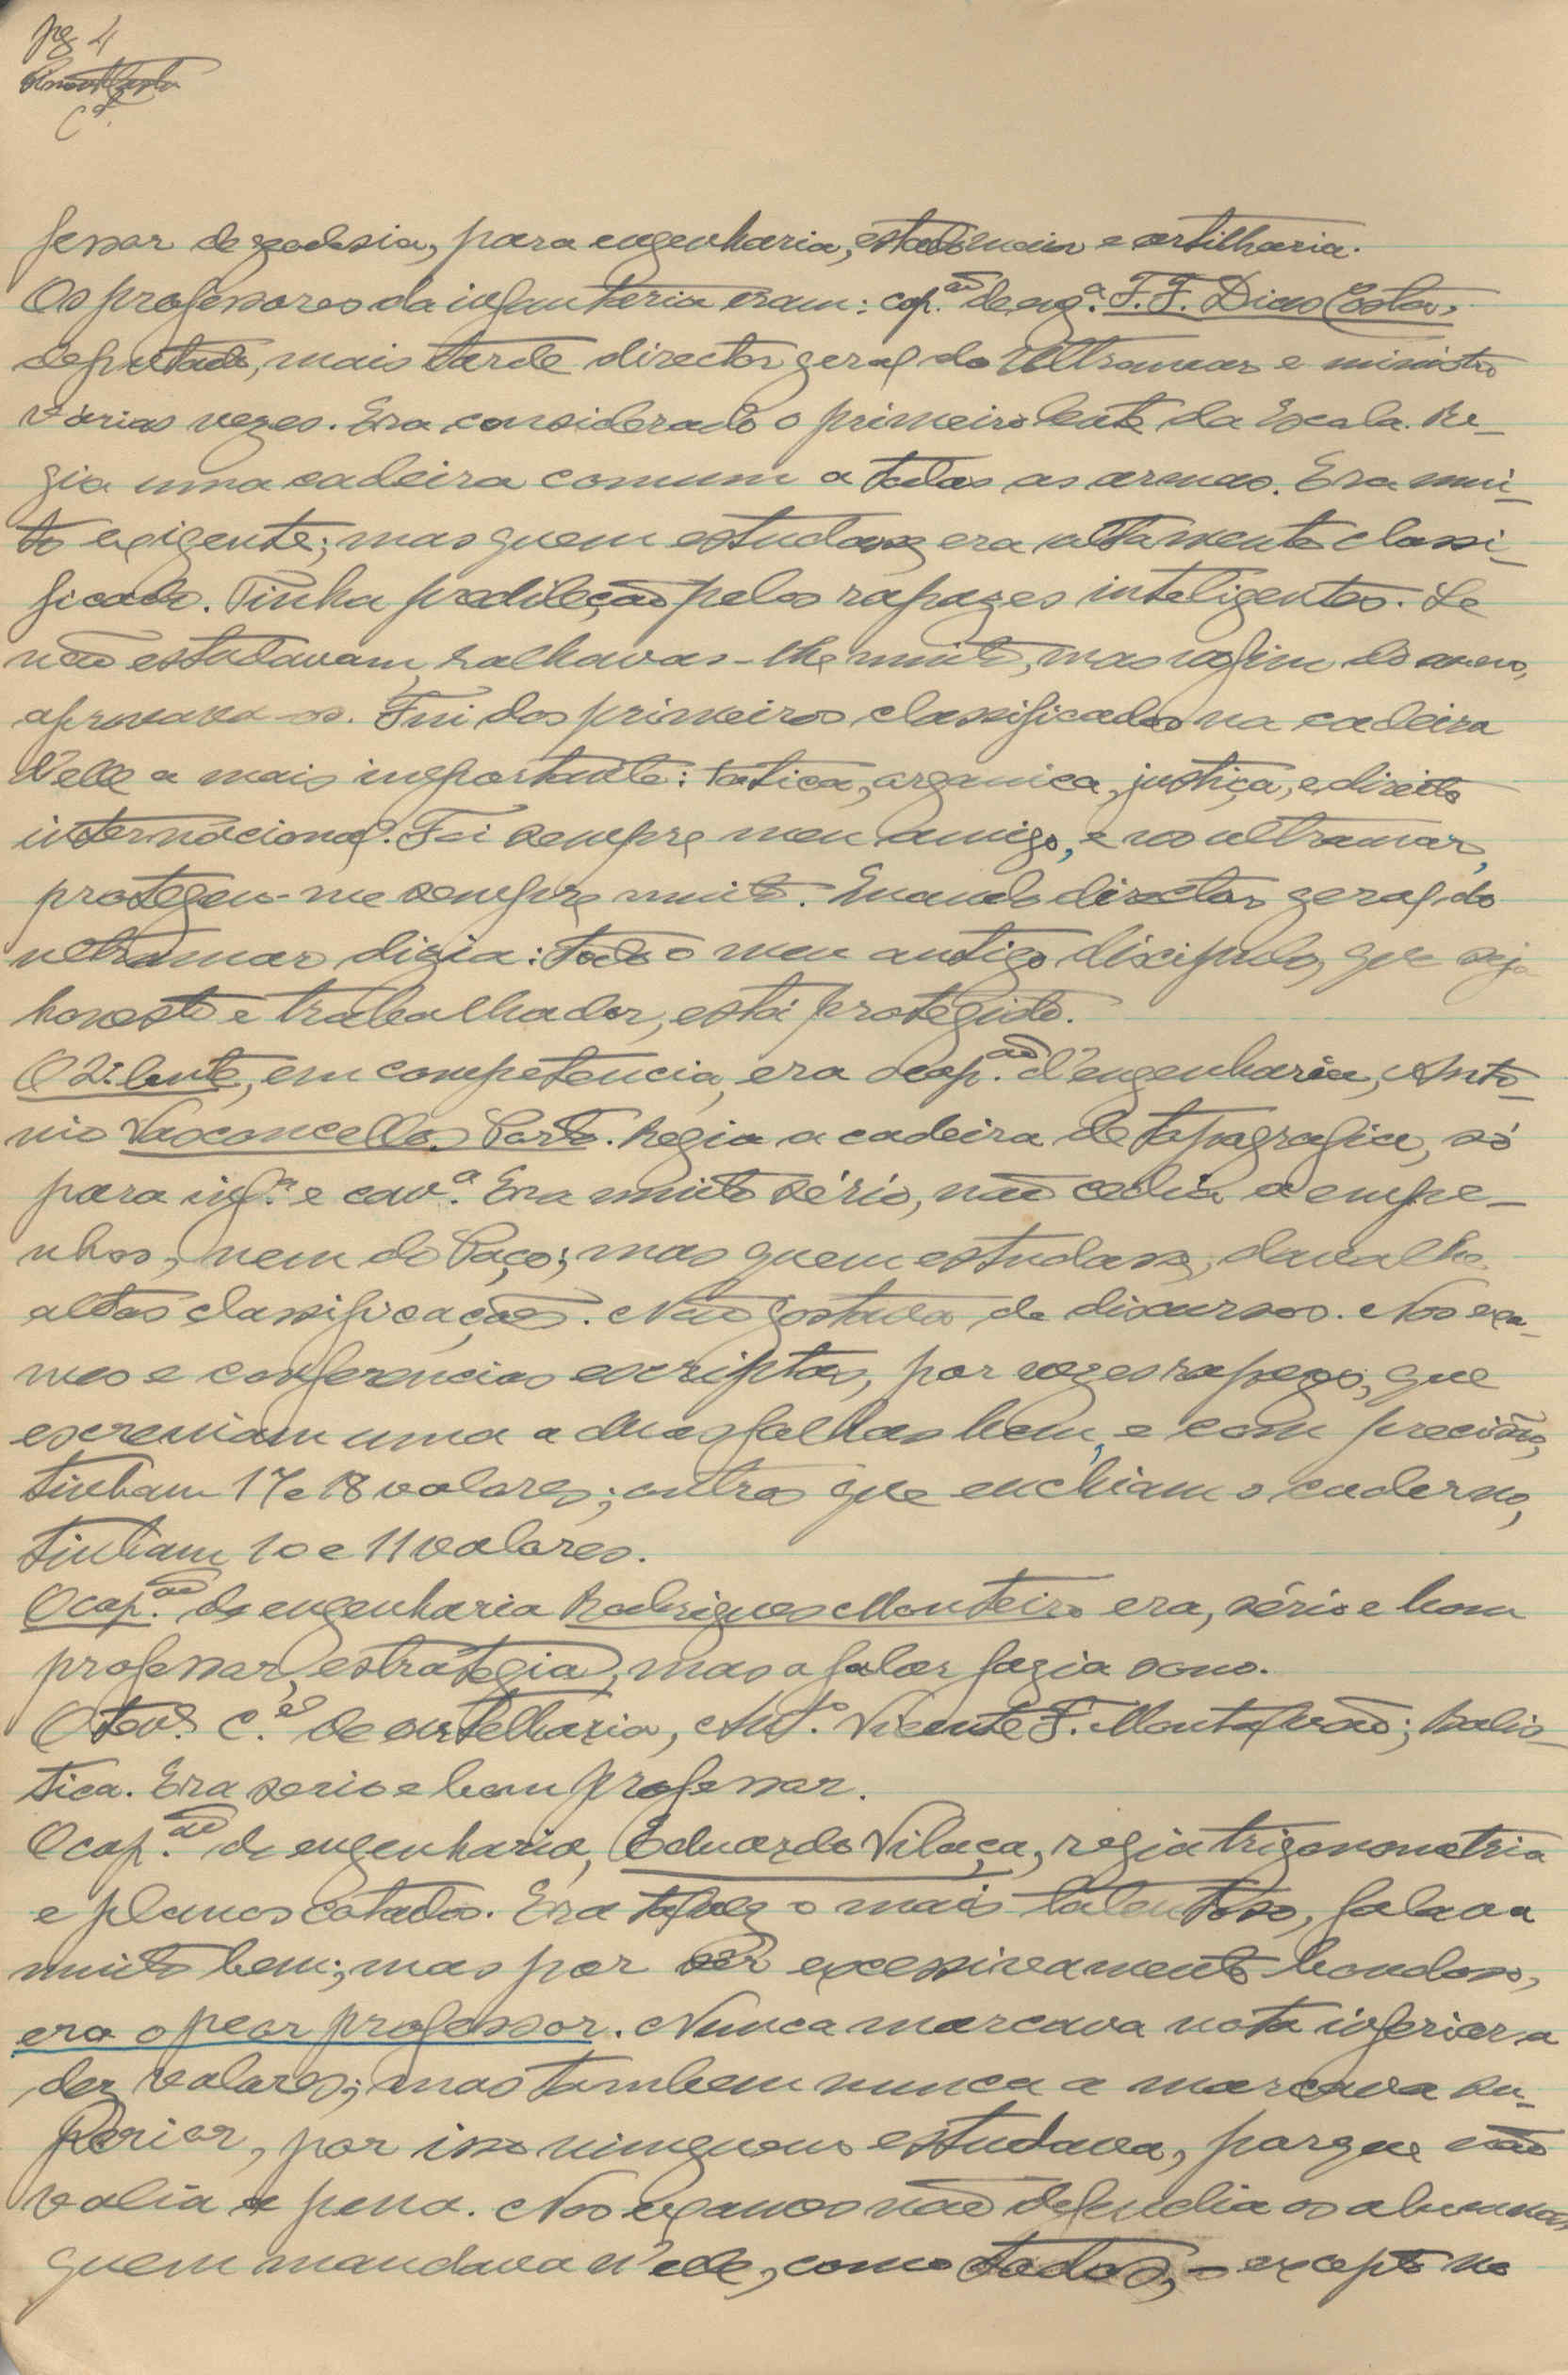 pg 4
fessor de geodesia, para engenharia, estado maior e artilharia.
Os professores da infanteria eram: cap.ão de eng.ª F. F. Dias Costa,
deputado, mais tarde director geral do Ultramar e ministro
várias vezes. Era considerado o primeiro lente da Escola. Re-
gia uma cadeira comum a todas as armas. Era mui-
to exigente; mas quem estudasse era altamente classi-
ficado. Tinha predileção pelos rapazes inteligentes. Se
não estudavam, ralhava-lhe muito, mas no fim do anno,
aprovava-os. Fui dos primeiros classificados na cadeira
d'elle a mais importante: tatica, organica, justiça, e direito
internacional. Foi sempre meu amigo, e no ultramar,
protegeu-me sempre muito. Quando director geral do
ultramar dizia: todo o meu antigo discipulo, que seja
honesto e trabalhador, está protegido.
O 2.º lente, em competencia, era o cap.ão d'engenharia, Anto-
nio Vasconcellos Porto. Regia a cadeira de topografia, só
para inf.ª e cav.ª Era muito sério, não cedia a empe-
nhos, nem do Paço; mas quem estudasse, dava-lhe
altas classificações. Não gostava de discursos. Nos exa-
mes e conferencias escriptas, por vezes rapazes, que
escreviam uma a duas folhas bem, e com precisão,
tinham 17 e 18 valores; outros que enchiam o caderno,
tinham 10 e 11 valores.
O cap.ão de engenharia Rodrigues Monteiro era, sério e bom
professor, estrategia, mas a falar fazia sono.
O ten.e C.el de artelharia, Ant.º Vicente F. Montalvão; balis-
tica. Era serio e bom professor.
O cap.ão de engenharia, Eduardo Vilaça, regia trigonometria
e planos cotados. Era talvez o mais talentoso, falava
muito bem; mas por ser excessivamente bondoso,
era o peor professor. Nunca marcava nota inferior a
dez valores; mas tambem nunca a marcava su-
perior, por isso ninguem estudava, porque não
valia a pena. Nos exames não defendia os alumnos
quem mandava n'ele, como todos, - excepto no